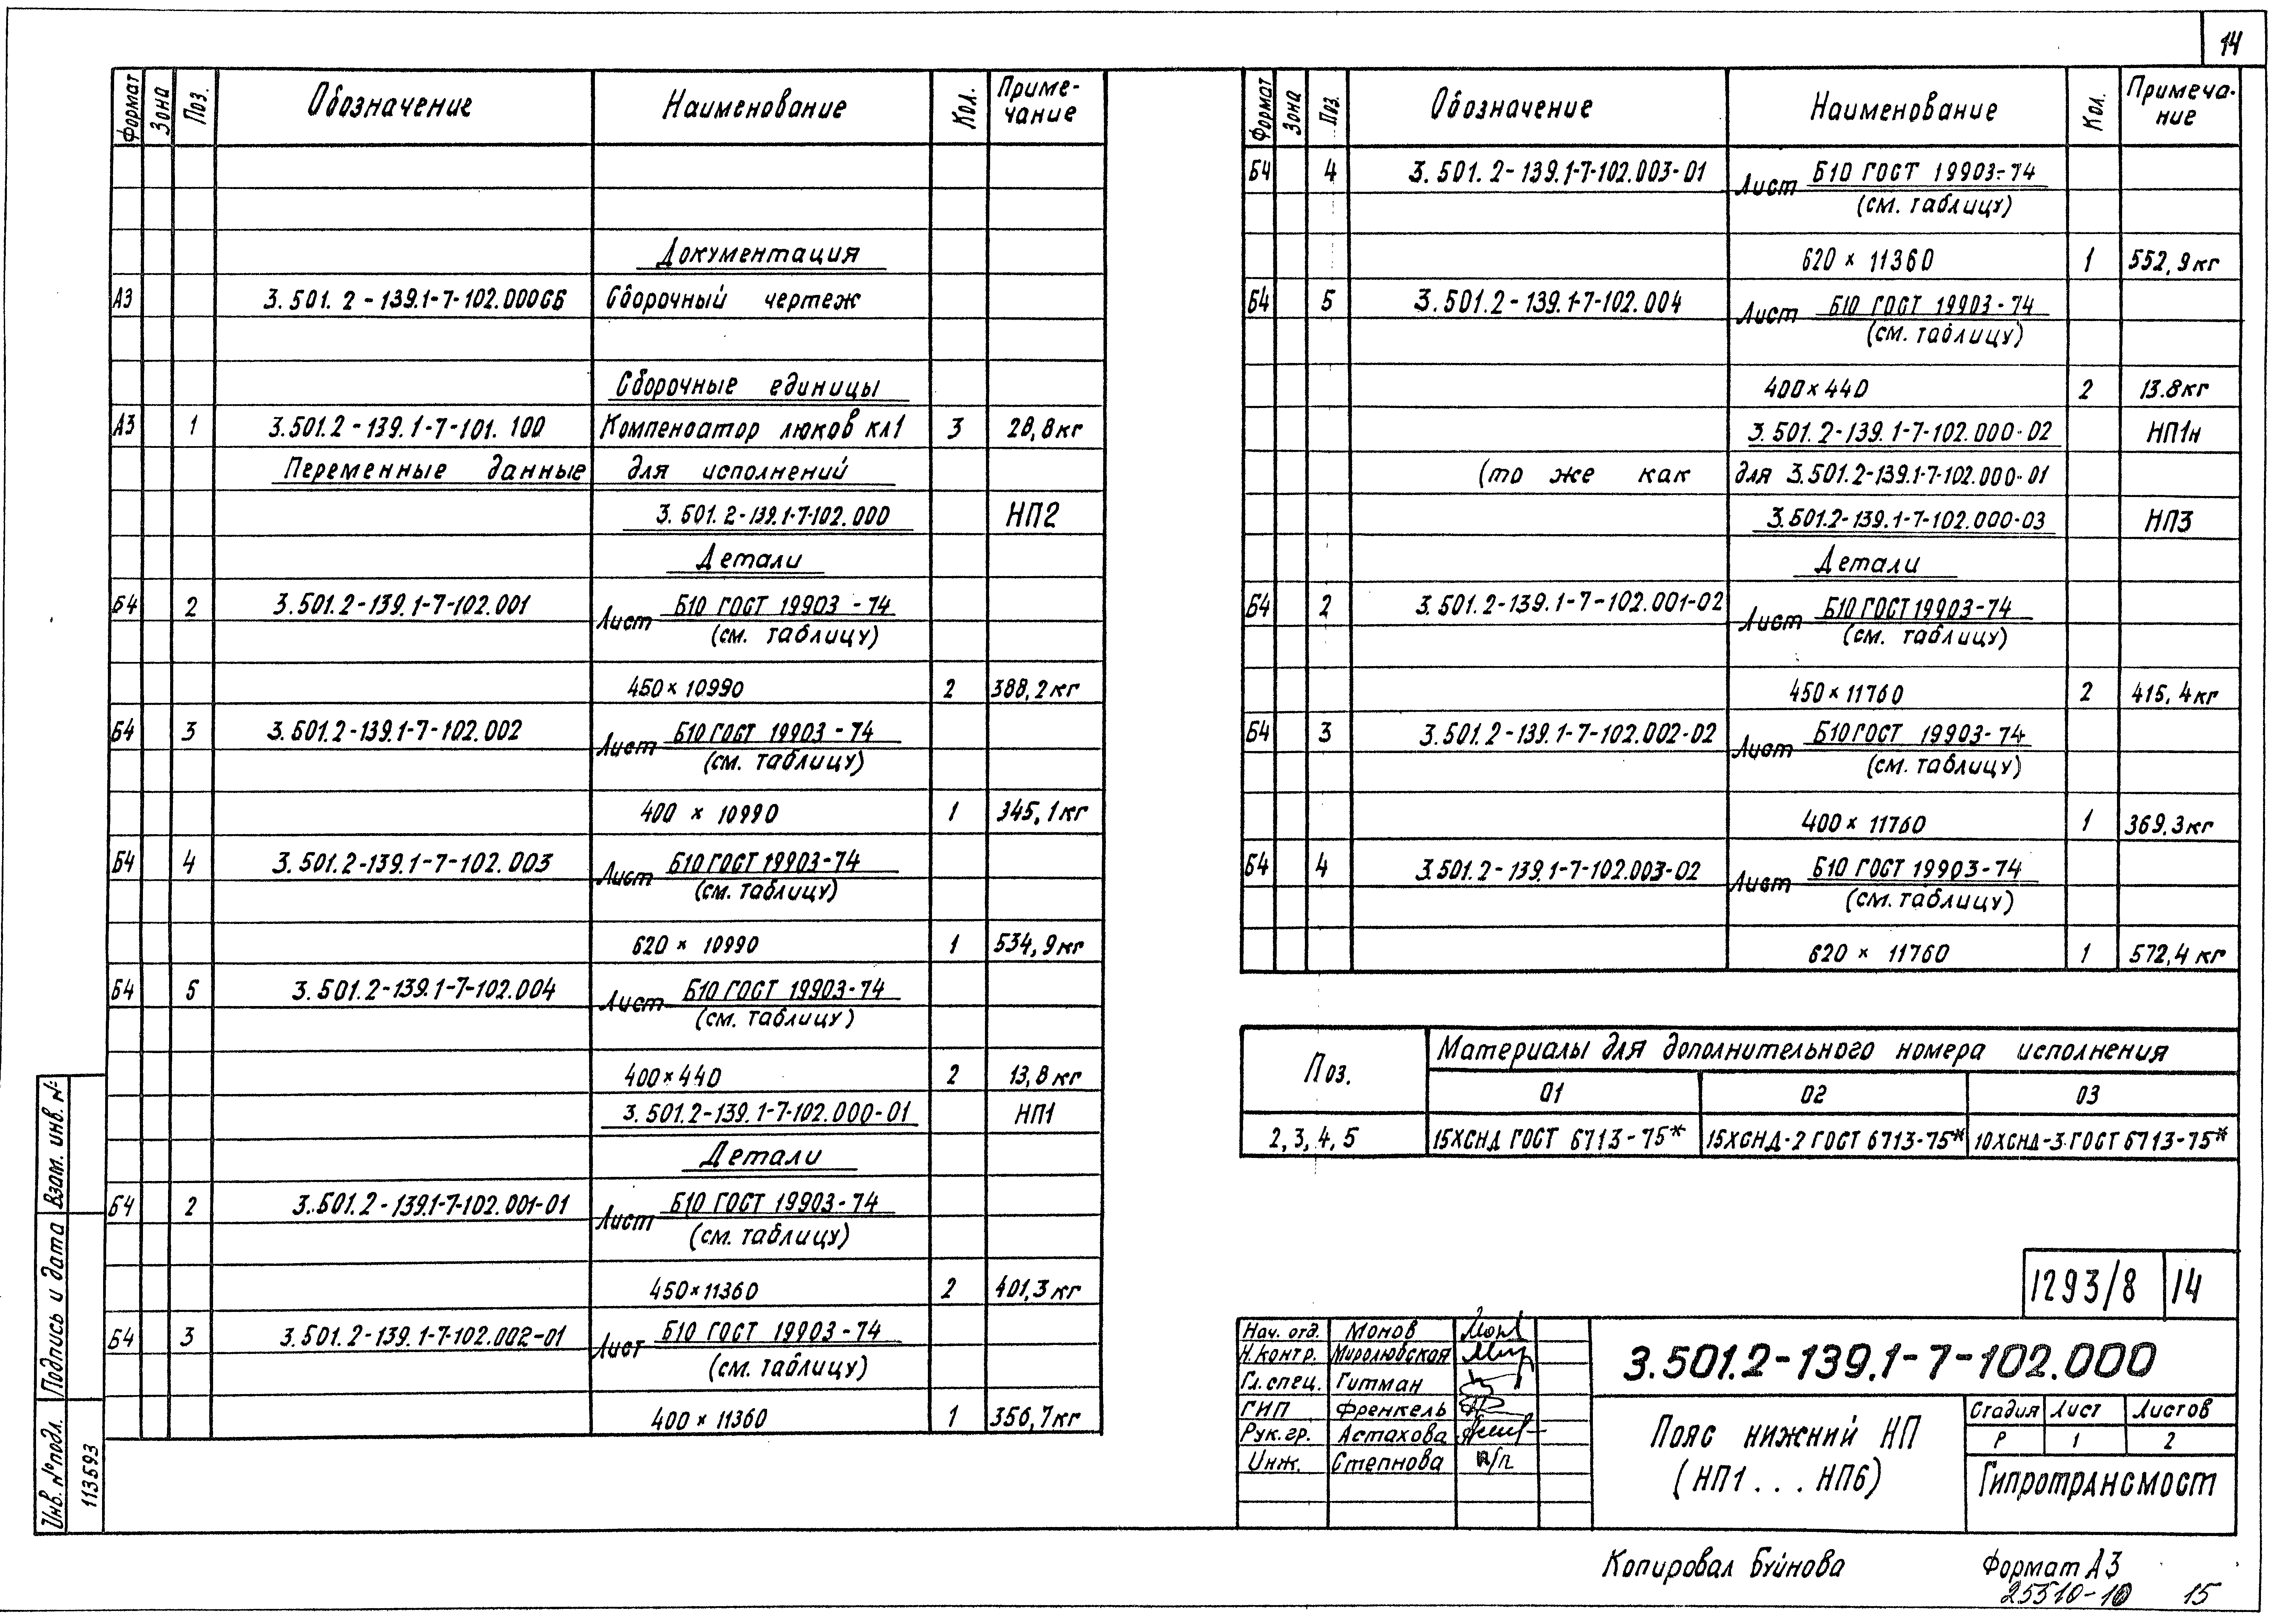 14
Формат Зона Поз. Обозначение Наименование Кол. Приме-чание
Документация
А3 3.501.2-139.1-7-102.000СБ Сборочный чертеж
Сборочные единицы
А3 1 3.501.2-139.1-7-101.100 Компенсатор люков кл1 3 28,8кг
Переменные данные для исполнений
3.501.2-139.1-7-102.000 НП2
Детали
Б4 2 3.501.2-139.1-7-102.001 Лист Б10 ГОСТ 19903-74
(см. таблицу)
450×10990 2 388,2кг
Б4 3 3.501.2-139.1-7-102.002 Лист Б10 ГОСТ 19903-74
(см. таблицу)
400 × 10990 1 345,1кг
Б4 4 3.501.2-139.1-7-102.003 Лист Б10 ГОСТ 19903-74
(см. таблицу)
620 × 10990 1 534,9кг
Б4 5 3.501.2-139.1-7-102.004 Лист Б10 ГОСТ 19903-74
(см. таблицу)
400×440 2 13,8кг
3.501.2-139.1-7-102.000-01 НП1
Детали
Б4 2 3.501.2-139.1-7-102.001-01 Лист Б10 ГОСТ 19903-74
(см. таблицу)
450×11360 2 401,3кг
Б4 3 3.501.2-139.1-7-102.002-01 Лист Б10 ГОСТ 19903-74
(см. таблицу)
400×11360 1 356,7кг
Формат Зона Поз. Обозначение Наименование Кол. Примеча-ние
Б4 4 3.501.2-139.1-7-102.003-01 Лист Б10 ГОСТ 19903-74
(см. таблицу)
620 × 11360 1 552,9кг
Б4 5 3.501.2-139.1-7-102.004 Лист Б10 ГОСТ 19903-74
(см. таблицу)
400×440 2 13.8кг
3.501.2-139.1-7-102.000-02 НП1н
(то же как для 3.501.2-139.1-7-102.000-01
3.501.2-139.1-7-102.000-03 НП3
Детали
Б4 2 3.501.2-139.1-7-102.001-02 Лист Б10 ГОСТ 19903-74
(см. таблицу)
450×11760 2 415,4кг
Б4 3 3.501.2-139.1-7-102.002-02 Лист Б10 ГОСТ 19903-74
(см. таблицу)
400×11760 1 369,3кг
Б4 4 3.501.2-139.1-7-102.003-02 Лист Б10 ГОСТ 19903-74
(см. таблицу)
620 × 11760 1 572,4кг
Поз. Материалы для дополнительного номера исполнения
01 02 03
2,3,4,5 15ХСНД ГОСТ 6713-75* 15ХСНД-2 ГОСТ 6713-75* 10ХСНД-3 ГОСТ 6713-75*
1293/8 14
Нач. отд. Монов
Н.контр. Миролюбская
Гл. спец. Гитман
ГИП Френкель
Рук. гр. Астахова
Инж. Степнова п/п
3.501.2-139.1-7-102.000
Пояс нижний НП
(НП1...НП6)
Стадия Лист Листов
Р 1 2
Гипротрансмост
Инв. № подл. Подпись и дата Взам. инв. №
113593
Копировал Буйнова Формат А3
25510-10 15